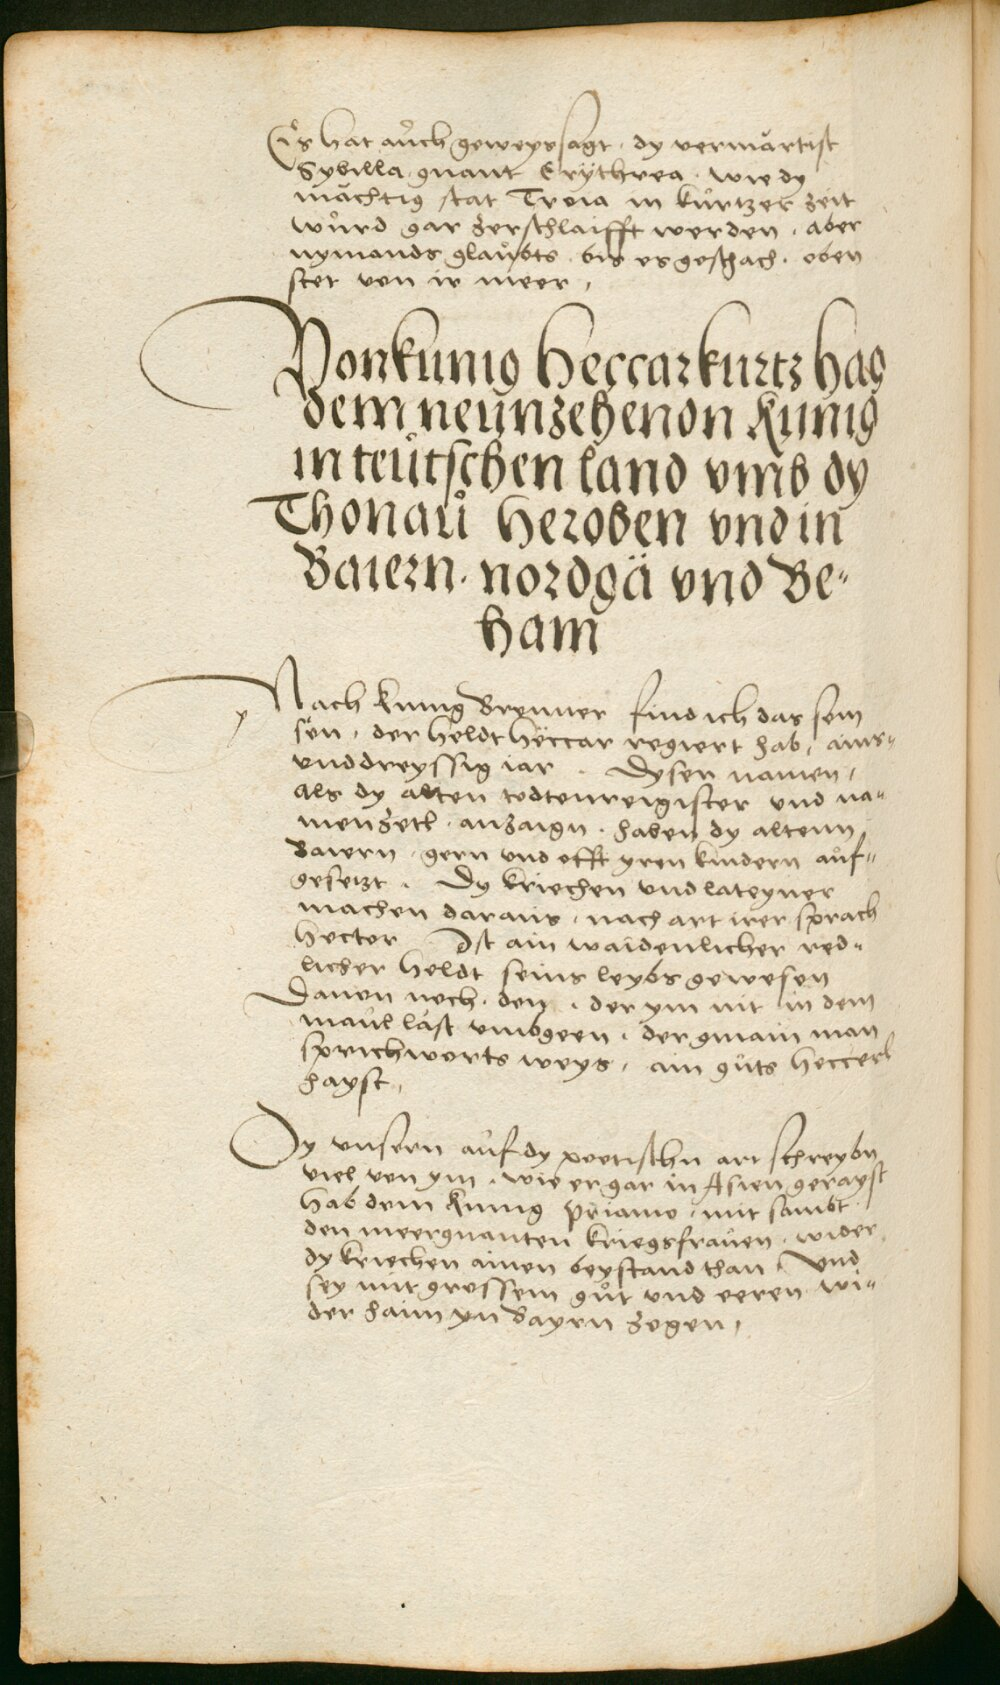 Es hat auch geweyssagt · dy vermärtist
Sybilla · gnant Erÿthrea · wie dy
mächtig stat Troia in kurtzer zeit
wurd gar zerschlaifft werden · aber
nymands glaubts · bis es geschach · oben
stet von ir meer ,
Von kunig Heccar kurtz hag
dem neunzehenden Kunig
in teutschen land vmb dy
Thonau heroben vnd in
Baiern · nordgä vnd Be-
ham
Nach kunig Brenner find ich das sein
sön · der heldt Heccar regiert hab , ains-
vnddreyssig iar . Dysen namen ,
als dy alten todtenreigister vnd na-
menzetl · anzaign · haben dy altenn
Baiern · gern vnd offt yren kindern auf-
gesetzt . Dy kriechen vnd lateyner
machen daraus , nach art irer sprach
Hector Ist ain waidenlicher red-
licher heldt seins leybs gewesen
Dauon noch · den · der ym nit in dem
maul läst vmbgeen · der gmain man
sprichworts weys , ain guts heccerl
hayst ,
Dy vnsern auf dy poetischn art schreybn
viel von ym · wie er gar in Asien gerayst
hab dem kunig Priamo · mit sambt
den meergnanten kriegsfrauen · wider
dy kriechen ainen beystand than · Vnd
sey mit grossem gut vnd eeren wi-
der haim yn Bayrn zogen ,